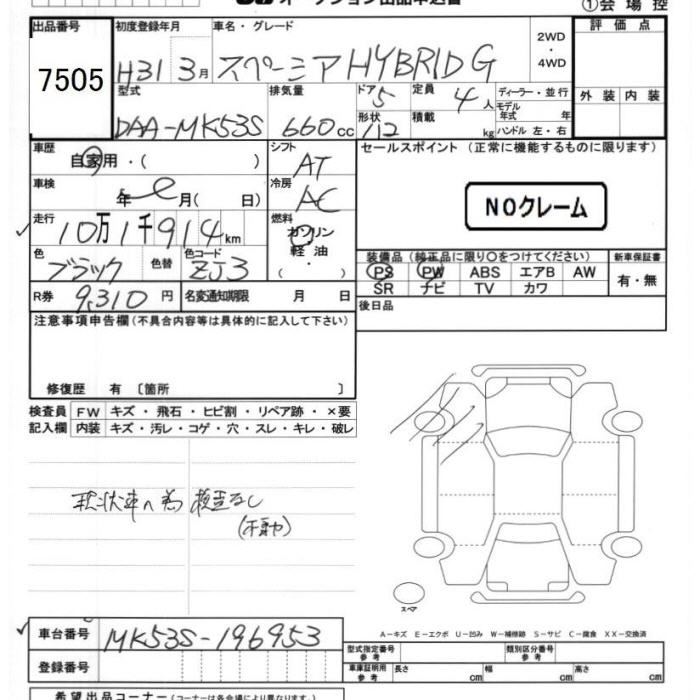 オークション出品申込書
①会場控
出品番号 初度登録年月 車名・グレード 評価点
7505 H31 3月 スペーシア HYBRID G 2WD・4WD
型式 排気量 ドア 5 定員 4人 ディーラー・並行 外装 内装
DAA-MK53S 660cc 形状 112 積載 kg モデル年式 年 ハンドル 左・右
車歴 自家用・( ) シフト AT セールスポイント (正常に機能するものに限ります)
車検 年 月( 日) 冷房 AC
NOクレーム
走行 10万1千914km 燃料 ガソリン・軽油・( )
色 ブラック 色替 色コード ZJ3
装備品 (純正品に限り○をつけてください) 新車保証書
PS PW ABS エアB AW 有・無
SR ナビ TV カワ
R券 9,310円 名変通知期限 月 日 後日品
注意事項申告欄(不具合内容等は具体的に記入して下さい)
修復歴 有 〔箇所 〕
検査員 FW キズ・飛石・ヒビ割・リペア跡・×要
記入欄 内装 キズ・汚レ・コゲ・穴・スレ・キレ・破レ
現状車の為 検査なし
(不動や)
スペア
A-キズ E-エクボ U-凹み W-補修跡 S-サビ C-腐食 XX-交換済
車台番号 MK53S-196953
型式指定番号 参考 類別区分番号 参考
登録番号
車庫証明用 参考 長さ cm 幅 cm 高さ cm
希望出品コーナー(コーナー名は各会場により異なります)